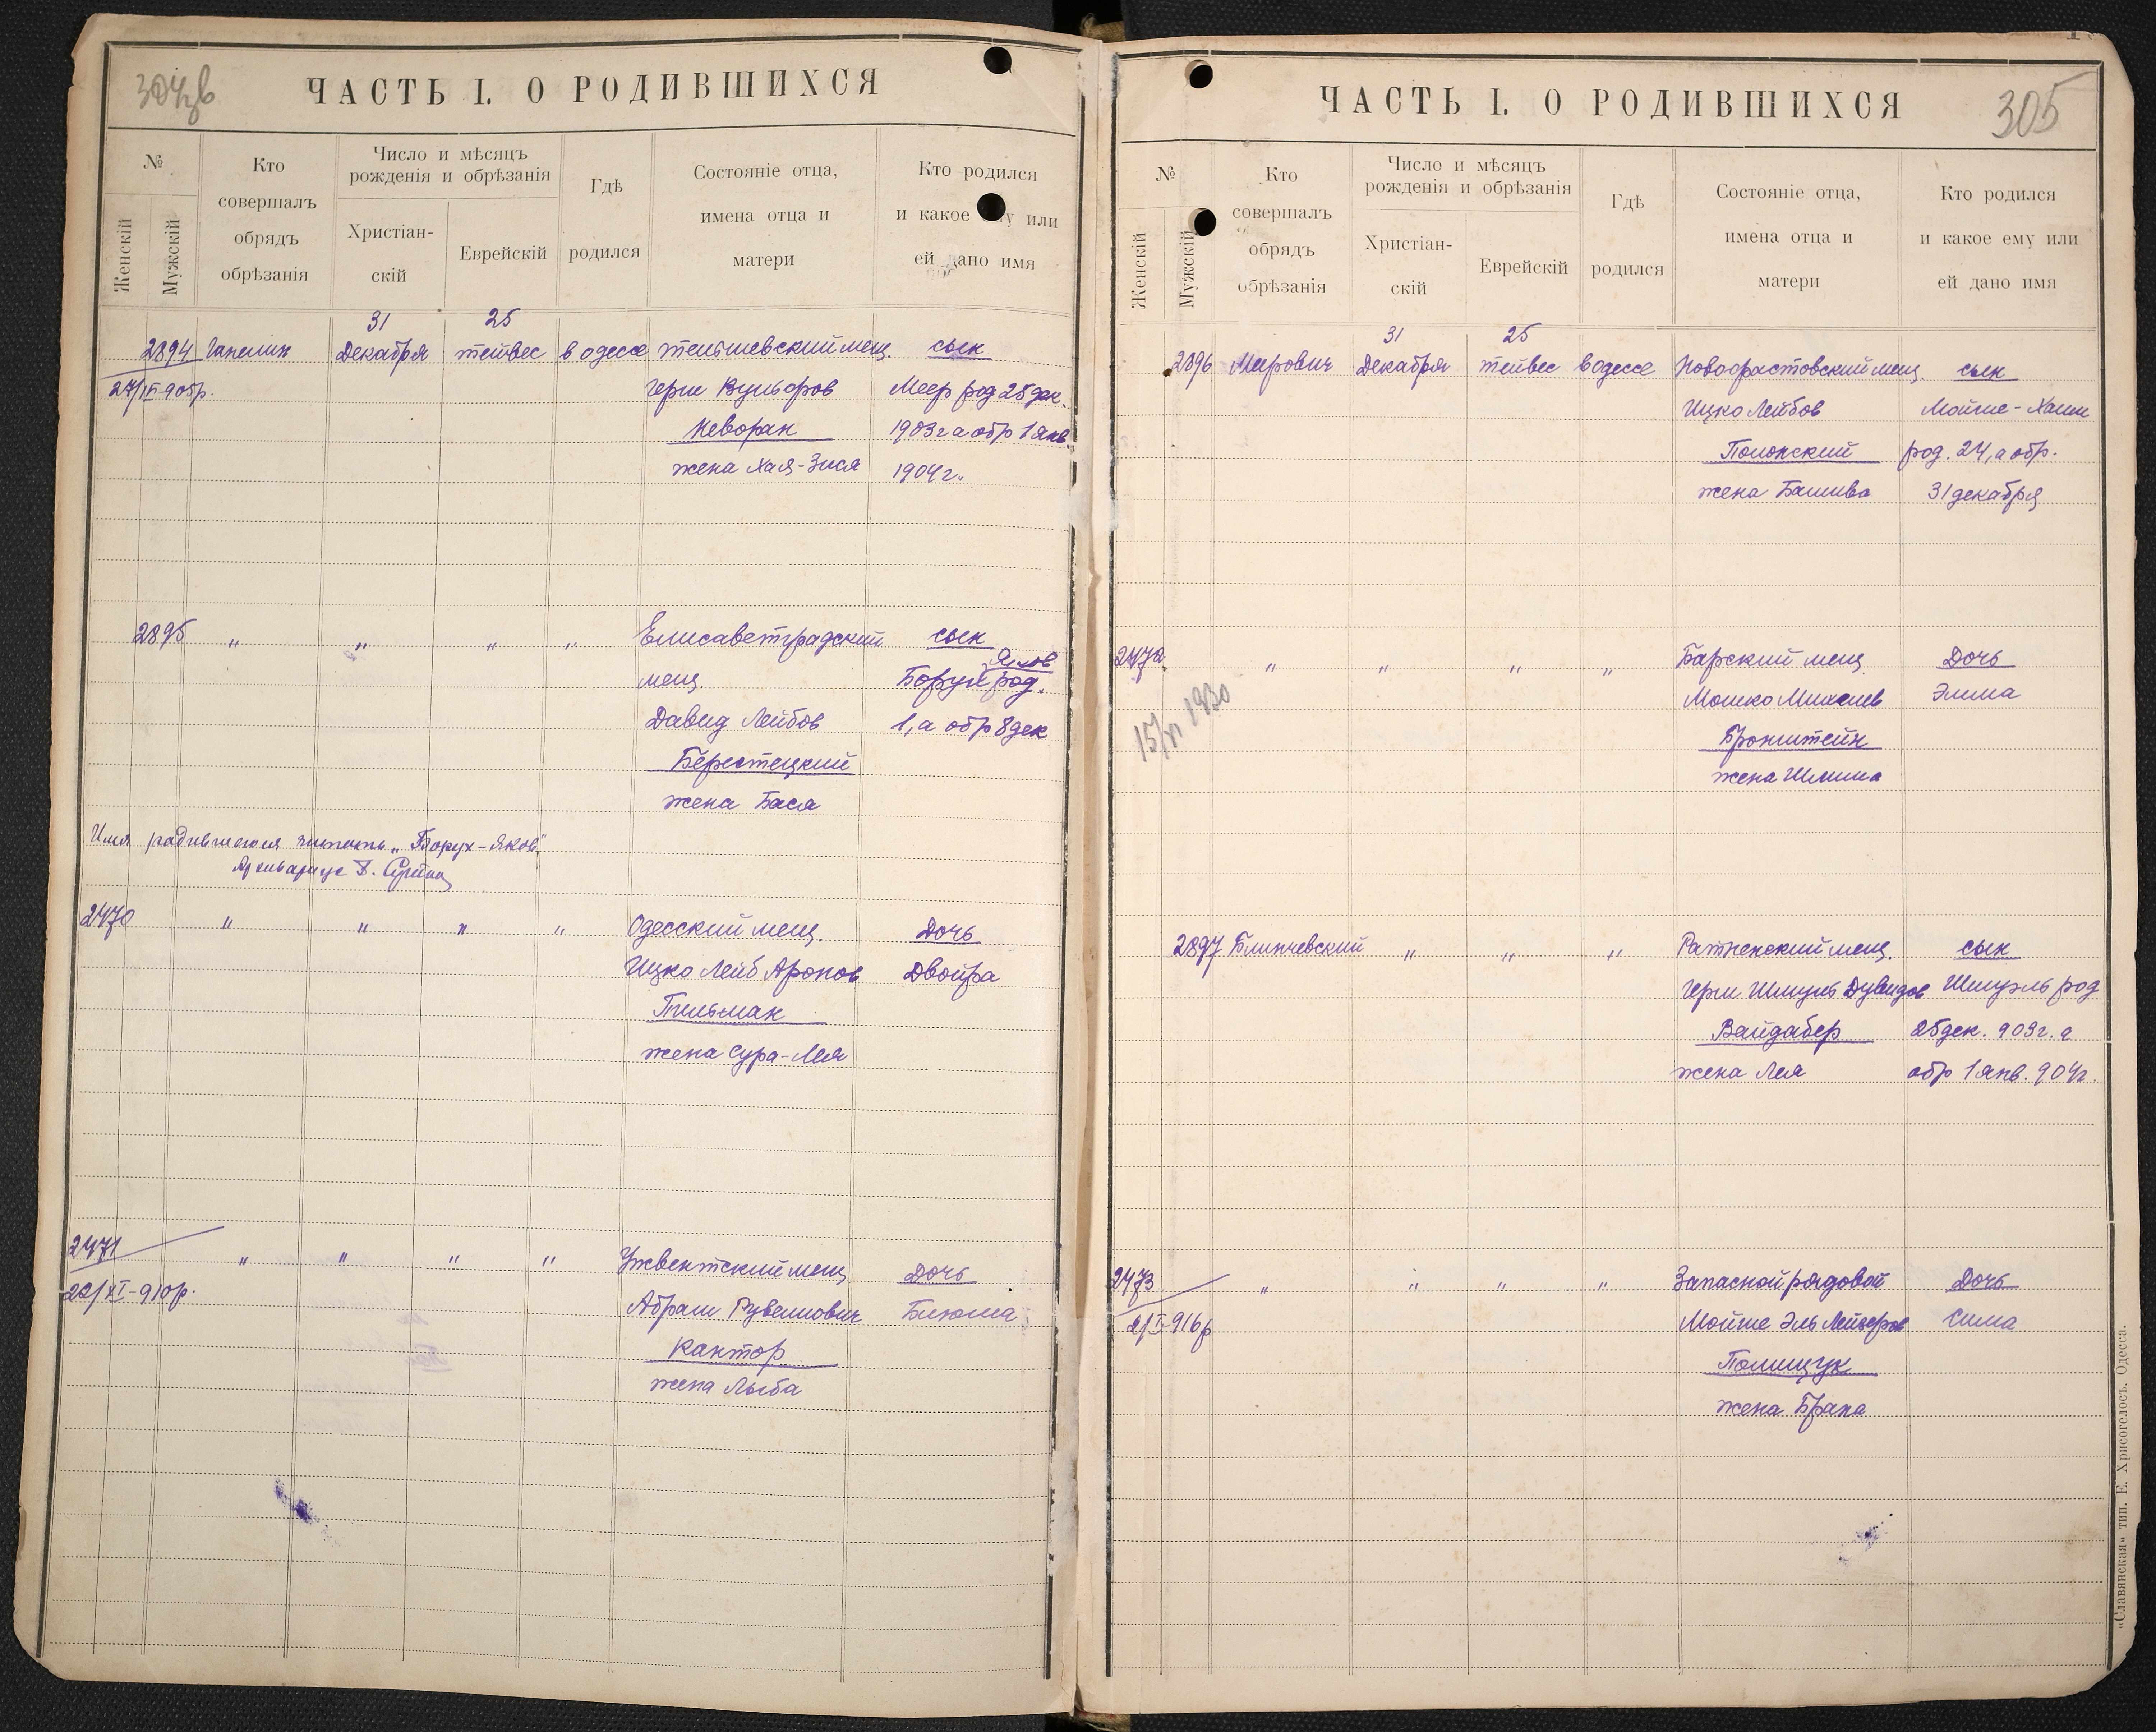 304 об
ЧАСТЬ I. О РОДИВШИХСЯ
№
Женскій
Мужскій
Кто совершалъ обрядъ обрѣзанія
Число и мѣсяцъ рожденія и обрѣзанія
Христіан-скій
Еврейскій
Гдѣ родился
Состояніе отца, имена отца и матери
Кто родился и какое ему или ей дано имя
31 25
2894 Гапелин Декабря тейвес в одессе мещ. сын
27/IX-905р. Герш Вульфов Меер род 25 дек.
Неворан 1903г а обр 1 янв.
жена Хая-Зися 1904г.
2895 " " " " Елисаветградский сын
Яков
мещ. Борух род.
Давид Лейбов 1, а обр 8 дек
Берестецкий
жена Бася
Имя родившегося читать „Борух-Яков"
2470 " " " " Одесский мещ. Дочь
Ицко Лейб Аронов Двойра
Гильман
жена Сура-Лея
2471 " " " " Ужвентский мещ Дочь
22/XI-910р. Абрам Рувелиович Блюма
Кантор
жена Лыба
ЧАСТЬ I. О РОДИВШИХСЯ
305
№
Женскій
Мужскій
Кто совершалъ обрядъ обрѣзанія
Число и мѣсяцъ рожденія и обрѣзанія
Христіан-скій
Еврейскій
Гдѣ родился
Состояніе отца, имена отца и матери
Кто родился и какое ему или ей дано имя
31 25
2896 Меерович Декабря тейвес в одессе Новофастовский мещ. сын
Ицко Лейбов Мойше-Хаим
Полонский род. 24, а обр.
жена Башива 31 декабря
2472 " " " " Барский мещ. Дочь
Мошко Михелев Элема
15/VI 1930
Бронштейн
жена Шлима
2897 Блинчевский " " " Ратненский мещ. сын
Герш Шмуль Дувидов Шмуэль род
Вайдабер 25 дек. 903г. а
жена Лея обр 1 янв. 904г.
2473 " " " " Запасной рядовой Дочь
2/I-916р Мойше Эль Лейзеров Сима
Полищук
жена Брана
«Славянская» тип. Е. Хрисогелосъ. Одесса.